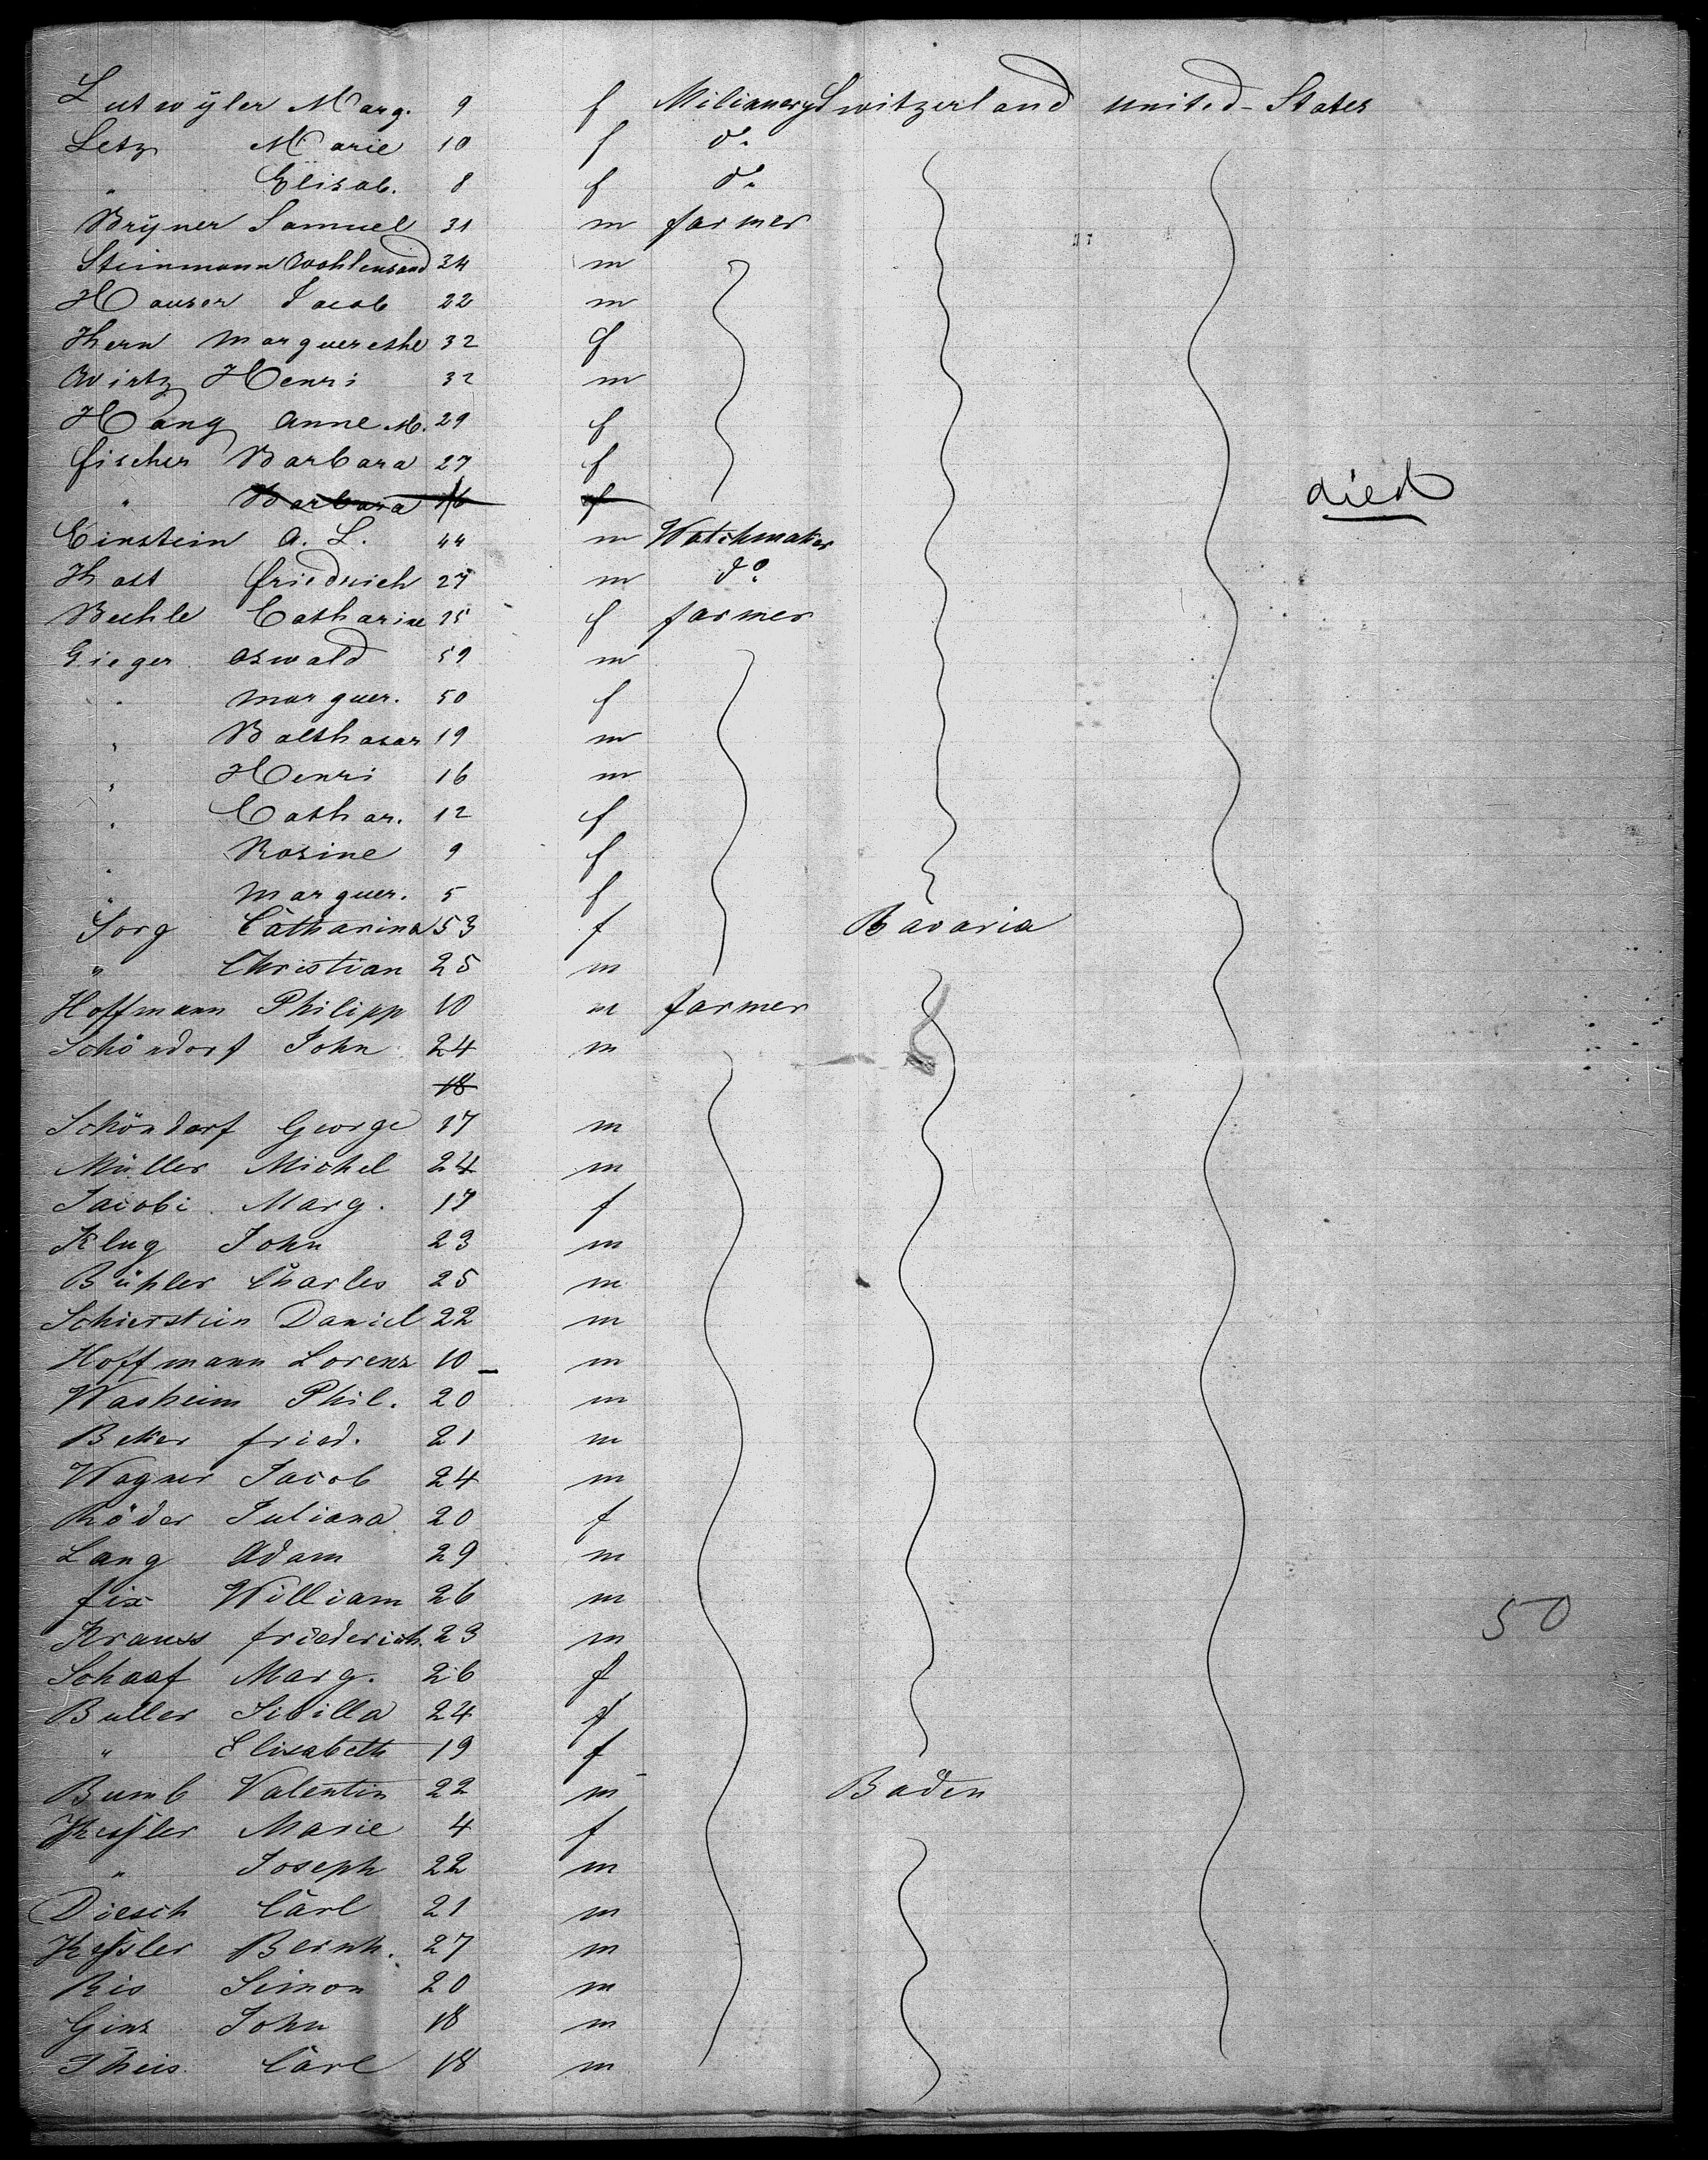 Lutwÿler Marg. 9 f Milinnery Switzerland united-States
Letz Marie 10 f do
" Elisab. 8 f do
Brÿner Samuel 31 m farmer
Steinmann Wohlensand 24 m
Hauser Jacob 22 m
Kern Marguerethe 32 f
Wirtz Henri 32 m
Hang Anne M. 29 f
fischer Barbara 27 f
" Barbara 16 f died
Einstein A. L. 44 m Watchmaker
Hast friedrich 27 m do
Bechle Catharine 25 f farmer
Gieger Oswald 59 m
" Marguer. 50 f
" Balthasar 19 m
" Henri 16 m
" Cathar. 12 f
" Rosine 9 f
" Marguer. 5 f
Sorg Catharina 53 f Bavaria
" Christian 25 m
Hoffmann Philipp 10 m farmer
Schöndorf John 24 m
18
Schöndorf George 17 m
Müller Michel 24 m
Jacobi Marg. 17 f
Klug John 23 m
Bühler Charles 25 m
Schierstein Daniel 22 m
Hoffmann Lorenz 10 m
Washeim Phil. 20 m
Beker fried. 21 m
Wagner Jacob 24 m
Röder Juliana 20 f
Lang Adam 29 m
fix William 26 m
50
Krauss friederich. 23 m
Schaaf Marg. 26 f
Buller Sivilla 24 f
" Elisabeth 19 f
Bumb Valentin 22 m Baden
Kessler Marie 4 f
" Joseph 22 m
Diesch Carl 21 m
Kessler Bernh. 27 m
Ris Simon 20 m
Ginz John 18 m
Theis Carl 18 m